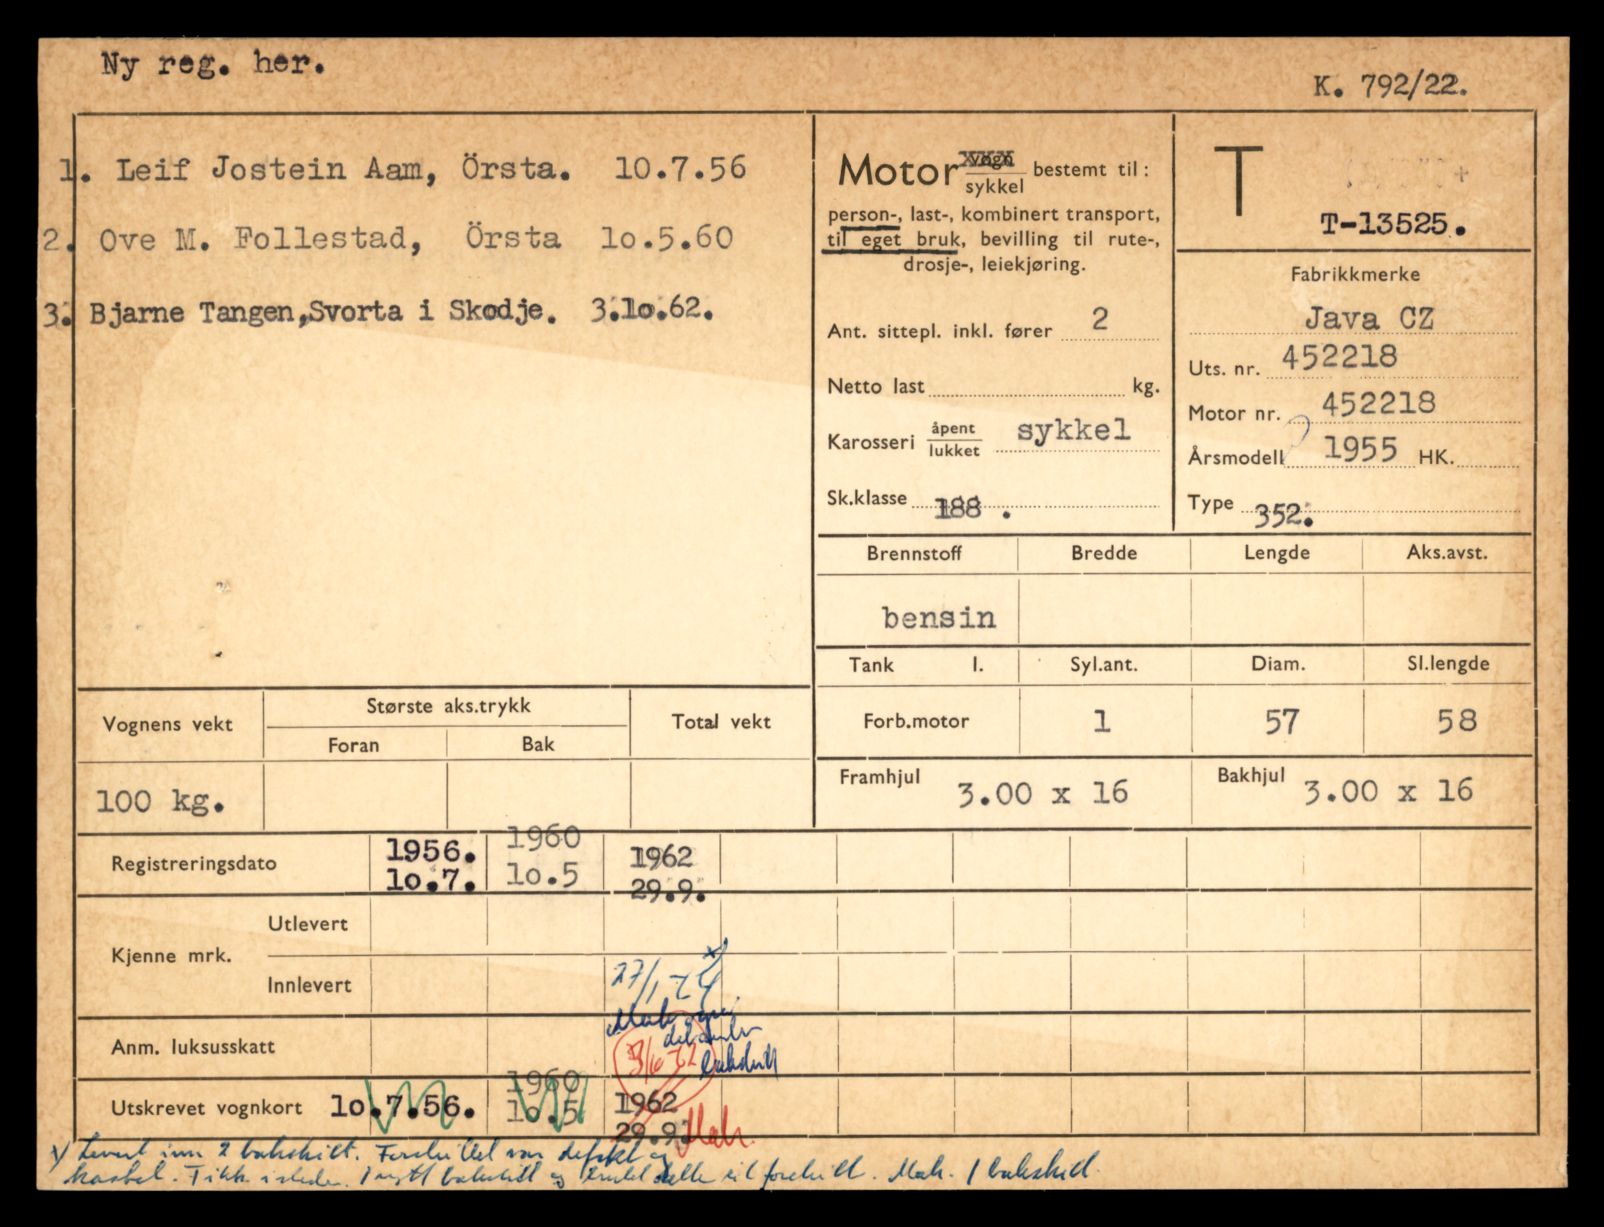 Ny reg. her.
K. 792/22.
1. Leif Jostein Aam, Örsta. 10.7.56
2. Ove M. Follestad, Örsta 1o.5.60
3. Bjarne Tangen, Svorta i Skodje. 3.1o.62.
Motor vogn/sykkel bestemt til:
person-, last-, kombinert transport,
til eget bruk, bevilling til rute-,
drosje-, leiekjøring.
Ant. sittepl. inkl. fører 2
Netto last kg.
Karosseri åpent/lukket sykkel
Sk.klasse 188 .
T
T-13525.
Fabrikkmerke
Java CZ
Uts. nr. 452218
Motor nr. 452218
Årsmodell 1955 HK.
Type 352.
Brennstoff Bredde Lengde Aks.avst.
bensin
Tank l. Syl.ant. Diam. Sl.lengde
Forb.motor 1 57 58
Framhjul 3.00 x 16 Bakhjul 3.00 x 16
Vognens vekt Største aks.trykk Total vekt
Foran Bak
100 kg.
Registreringsdato 1956. 1960 1962
1o.7. 1o.5 29.9.
Kjenne mrk. Utlevert
Innlevert 27/1-
Anm. luksusskatt
Utskrevet vognkort 1o.7.56. 1960 1962
1o.5 29.9.
Mah.
inn 2 bakskilt. var defekt og
i steden. 1 nytt bakskilt og til forskilt. Mah. 1 bakskilt.